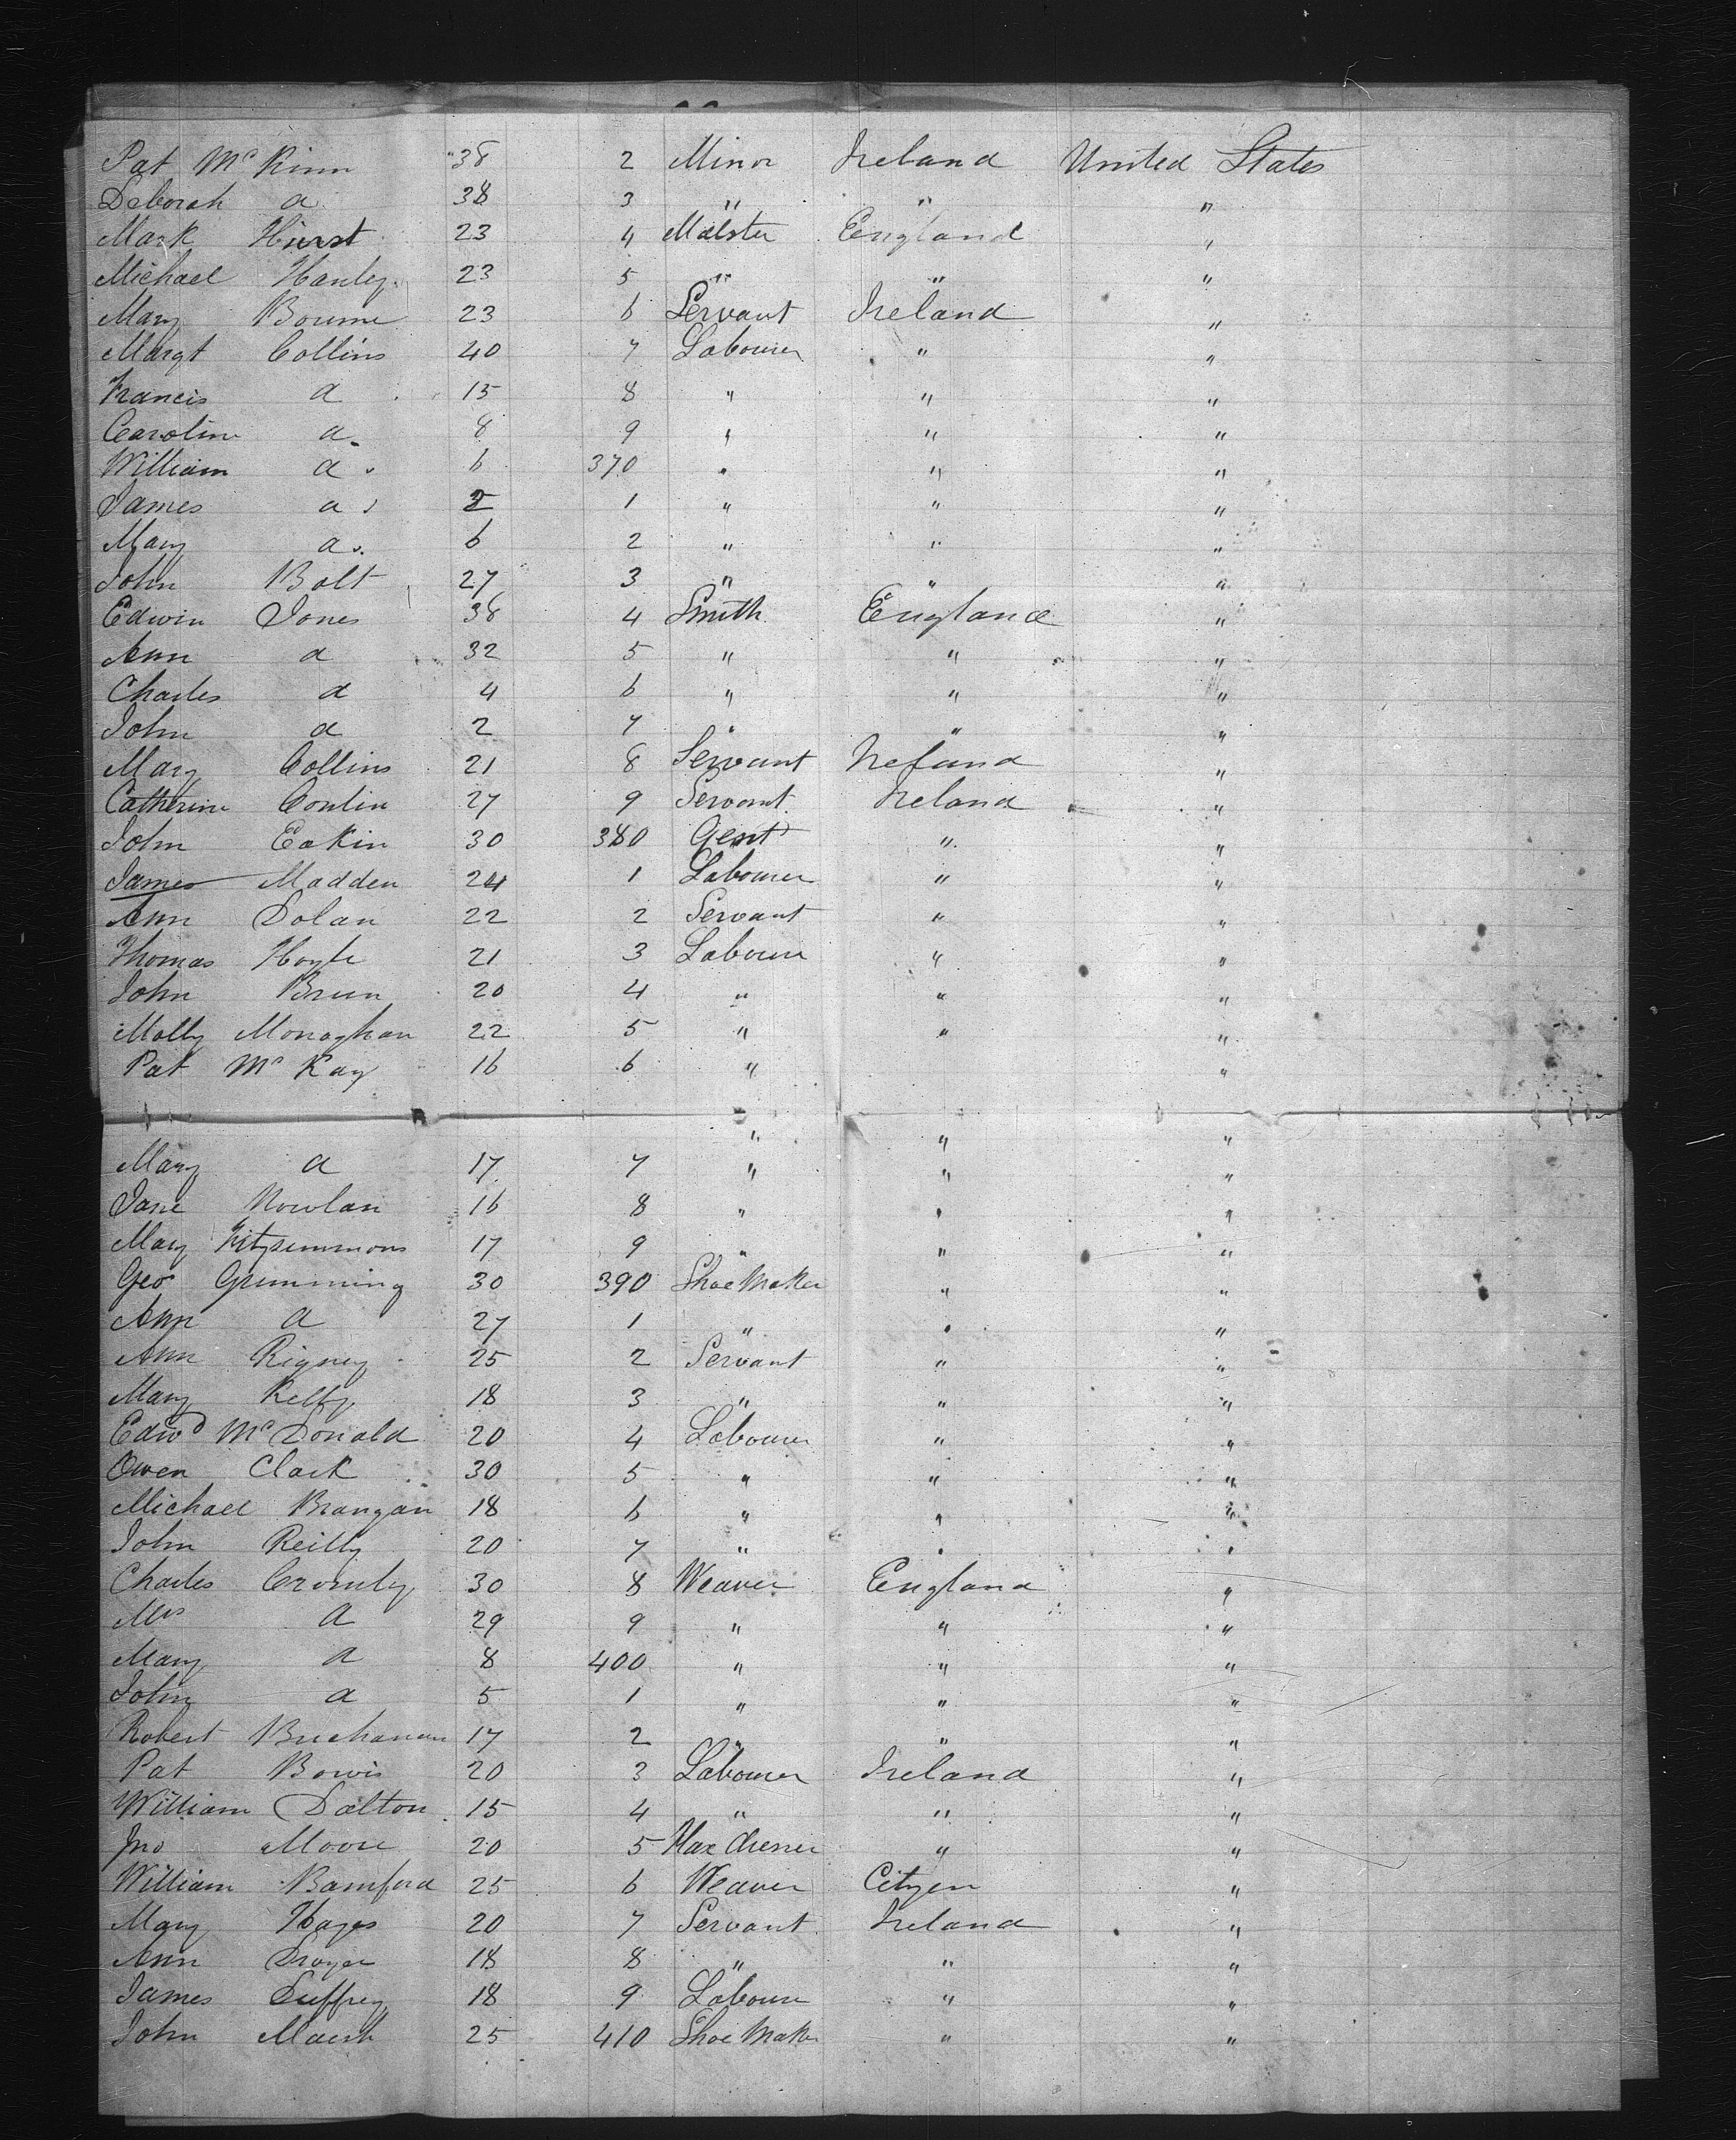 Pat Mc Kinn 38 2 Minor Ireland United States
Deborah a 38 3 " " "
Mark Hurst 23 4 Malster England "
Michael Hanley 23 5 " " "
Mary Bourne 23 6 Servant Ireland "
Margt Collins 40 7 Labourer " "
Francis a 15 8 " " "
Caroline a 8 9 " " "
William a 6 370 " " "
James a 2 1 " " "
Mary a 6 2 " " "
John Bolt 27 3 " " "
Edwin Jones 38 4 Smith England "
Ann a 32 5 " " "
Charles a 4 6 " " "
John a 2 7 " " "
Mary Collins 21 8 Servant Ireland "
Catherine Conlin 27 9 Servant Ireland "
John Eakin 30 380 Gent " "
James Madden 24 1 Labourer " "
Ann Dolan 22 2 Servant " "
Thomas Hoyle 21 3 Labourer " "
John Brun 20 4 " " "
Molly Monaghan 22 5 " " "
Pat Mc Kay 16 6 " "
" " "
Mary a 17 7 " " "
Jane Nowlan 16 8 " " "
Mary Fitzsimmons 17 9 " " "
Geo Grumming 30 390 Shoe Maker " "
Ann a 27 1 " " "
Ann Rigney 25 2 Servant " "
Mary Kelly 18 3 " " "
Edwd Mc Donald 20 4 Labourer " "
Owen Clark 30 5 " " "
Michael Brangan 18 6 " " "
John Reilly 20 7 " " "
Charles Cromley 30 8 Weaver England "
Mrs a 29 9 " " "
Mary a 8 400 " " "
John a 5 1 " " "
Robert Buchanan 17 2 " " "
Pat Bowis 20 3 Labourer Ireland "
William Dalton 15 4 " " "
Jno Moore 20 5 Flax dresser " "
William Bamford 25 6 Weaver Cityen "
Mary Hayes 20 7 Servant Ireland "
Ann Dwyer 18 8 " " "
James Duffrey 18 9 Labourer " "
John Marsh 25 410 Shoe Maker " "